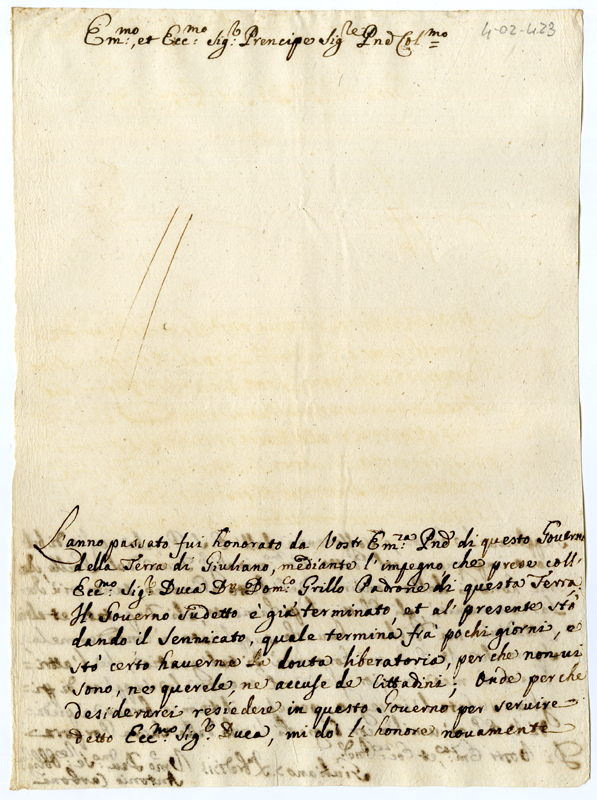 4-02-423
Em.mo, et Ecc.mo Sig.r Prencipe Sig.re Pnd Col.mo
L'anno passato fui honorato da Vostr Em.za Pnd di questo Governo
della Terra di Giuliano, mediante l'impegno che prese coll'
Ecc.mo Sig.r Duca D. Dom.co Grillo Padrone di questa Terra.
Il Governo sudetto è già terminato, et al' presente stò
dando il Sennicato, quale termina frà pochi giorni, e
stò certo haverne la douta liberatoria, perche non vi
sono, ne querele, ne accuse de Cittadini; Onde perche
desiderarei resiedere in questo Governo per servire
detto Ecc.mo Sig.r Duca, mi dò l'honore novamente